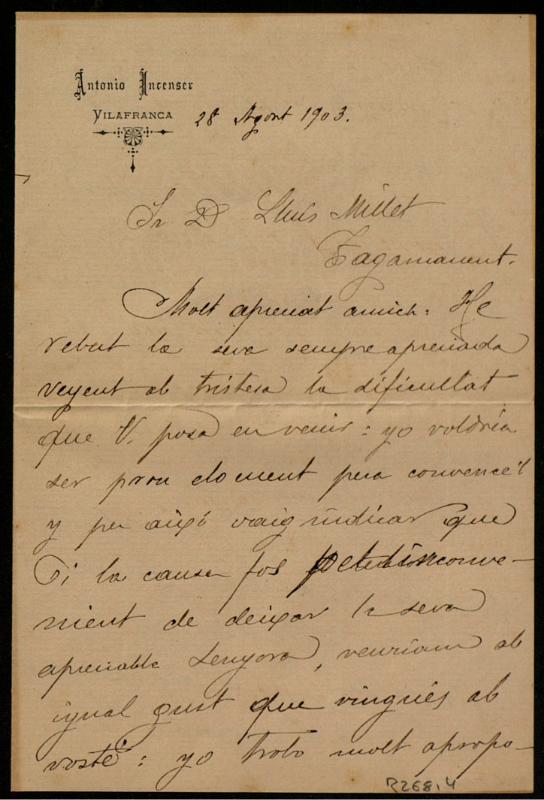 Antonio Incenser
VILAFRANCA
28 Agost 1903.
Sr D Lluís Millet
Tagamanent.
Molt apreciat amich: He
rebut la sua sempre apreciada
veyent ab tristesa la dificultat
que V. posa en venir: yo voldría
ser prou eloment pera convence'l
y per aixó vaig indicar que
si la causa fos l'inconve-
nient de deixar la seva
apreciable Senyora, veuriam ab
igual gust que vingués ab
vosté: yo trobo molt apropo-
R268,4